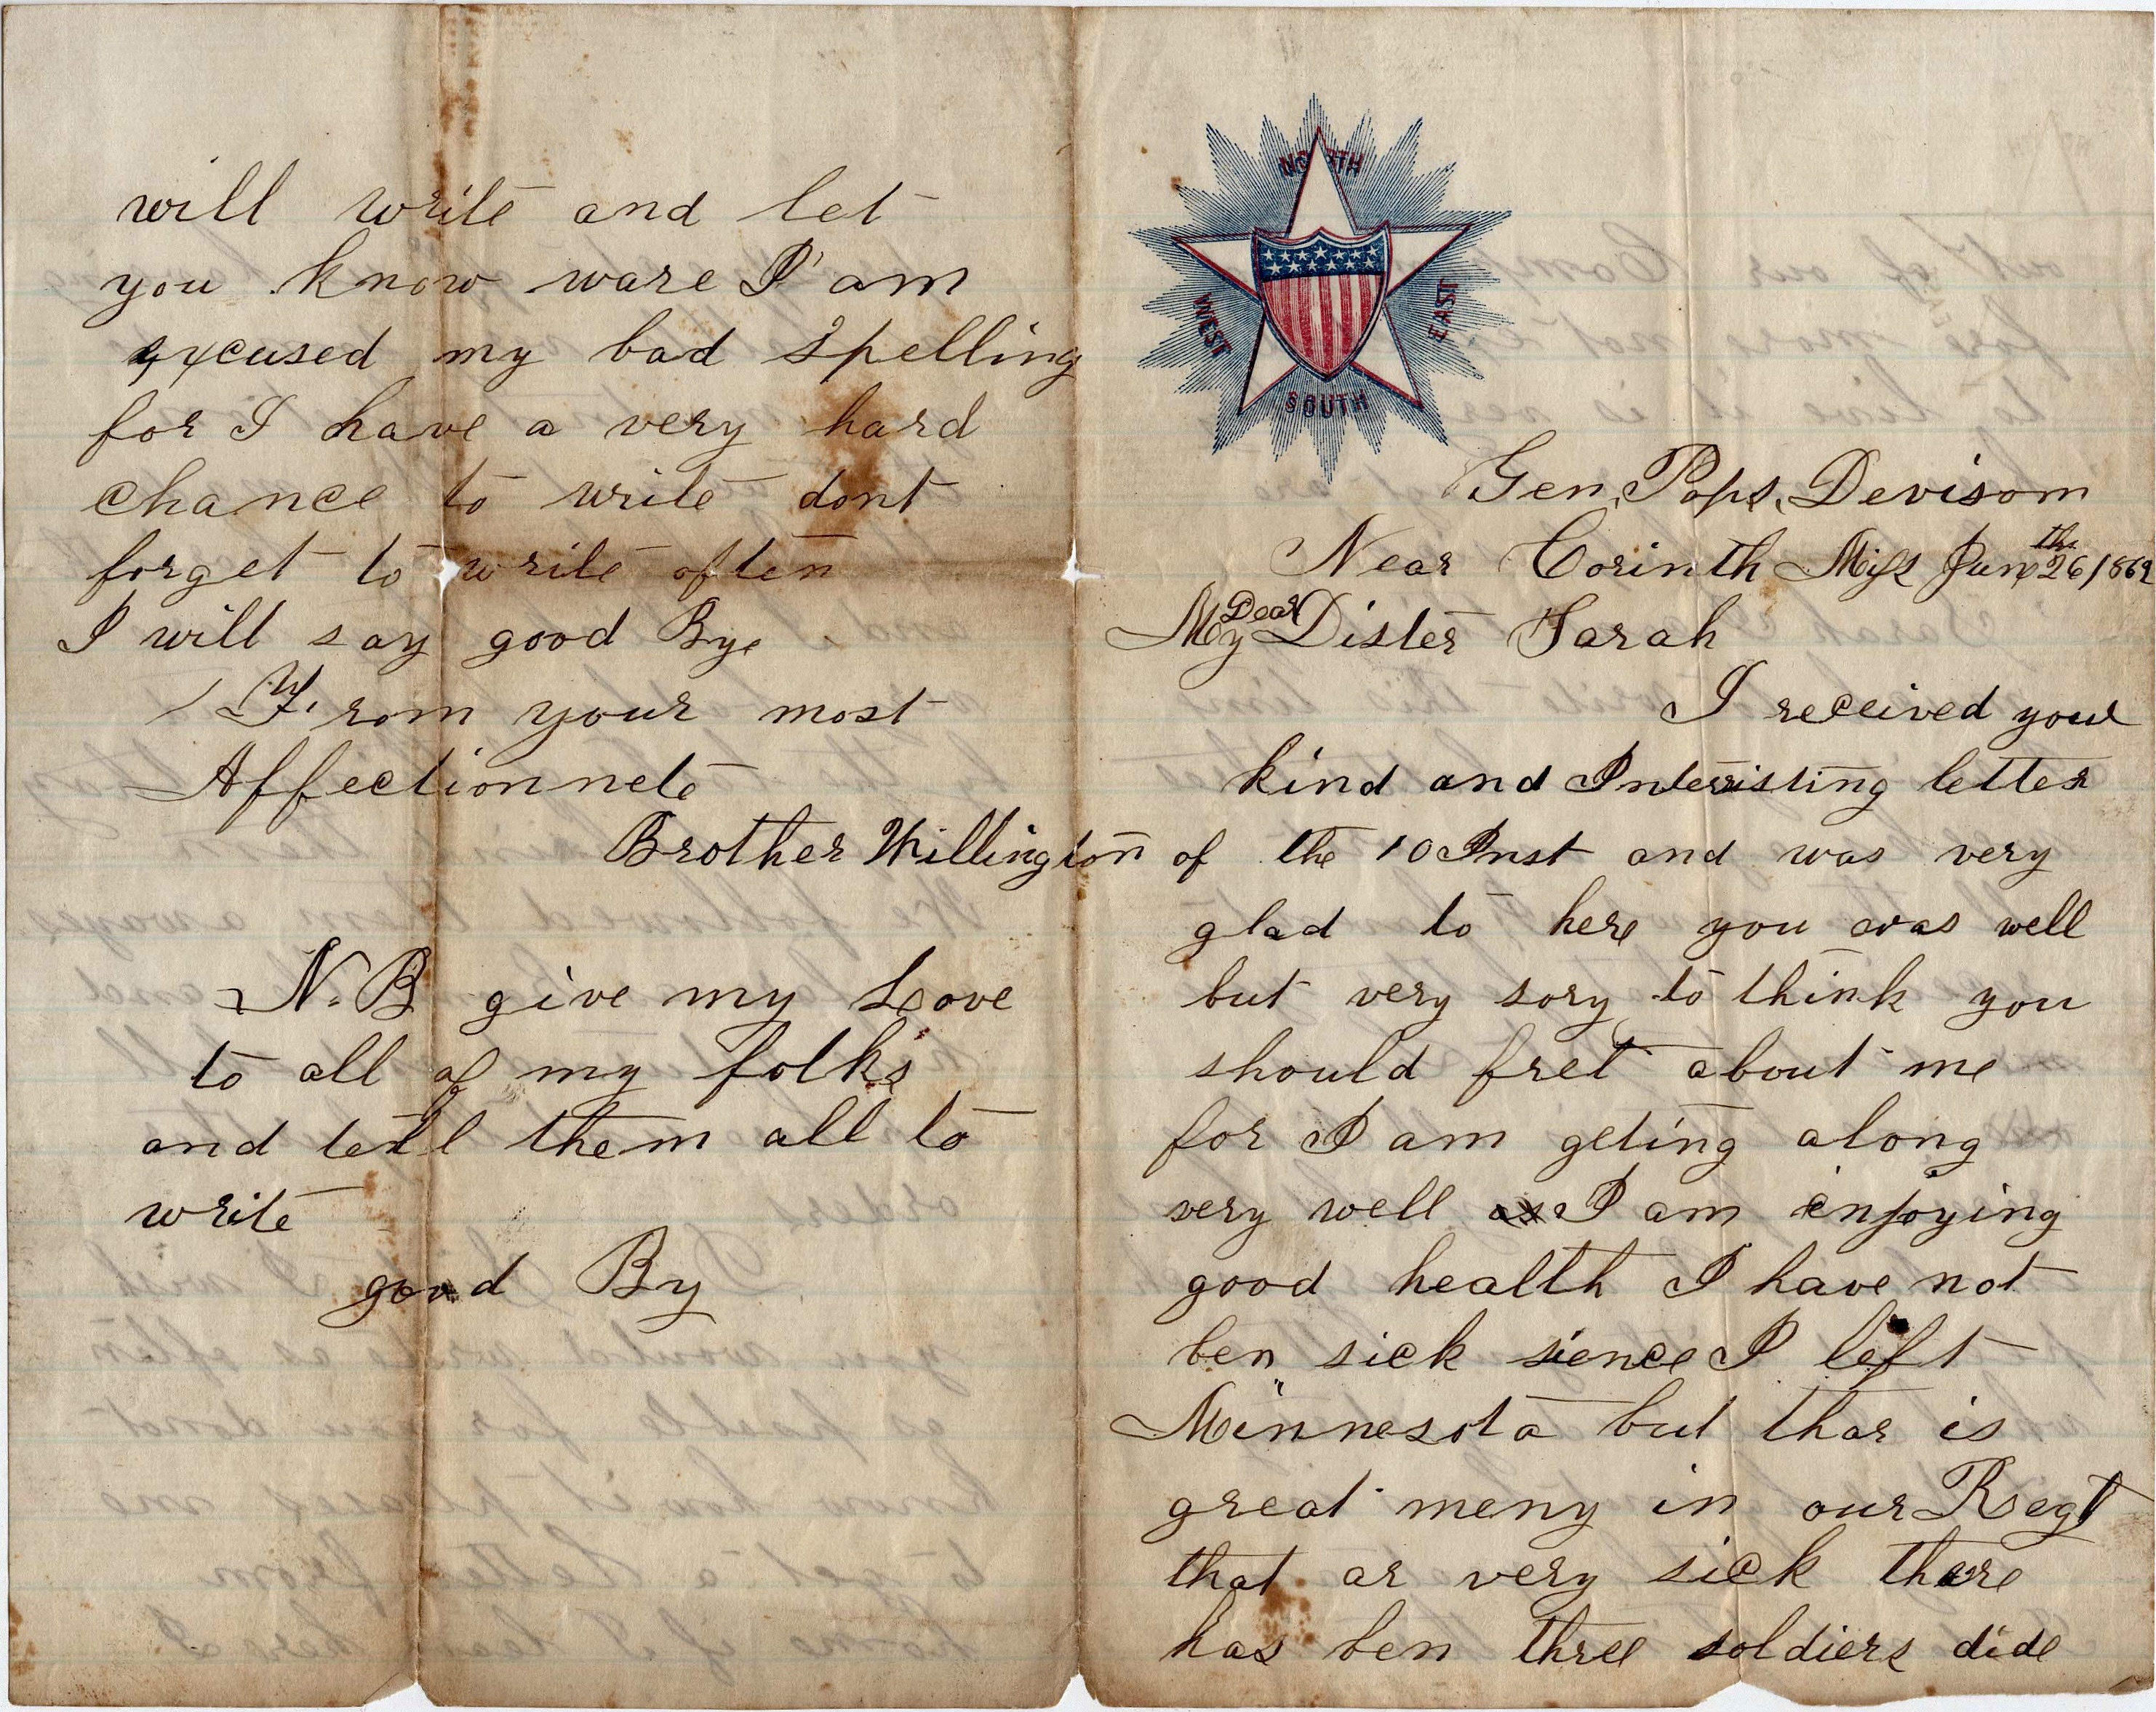 NORTH
WEST
EAST
SOUTH
Gen, Pops, Devisom
Near Corinth Miss Jun 26th 1862
My Dear Sister Sarah
I received your
kind and Interristing letter
of the 10 Inst and was very
glad to here you was well
but very sory to think you
should fret about me
for I am geting along
very well as I am enjoying
good health I have not
ben sick sience I left
Minnesota but thar is
great meny in our Regt
that ar very sick there
has ben three soldiers dide
will write and let
you know ware I am
excused my bad spelling
for I have a very hard
chance to write dont
forget to write often
I will say good Bye
From your most
Affectionnete
Brother Willington
N.B give my Love
to all of my folks
and tell them all to
write
good By